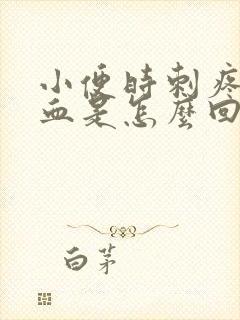 小便時刺疼
血是怎麼回
白茅